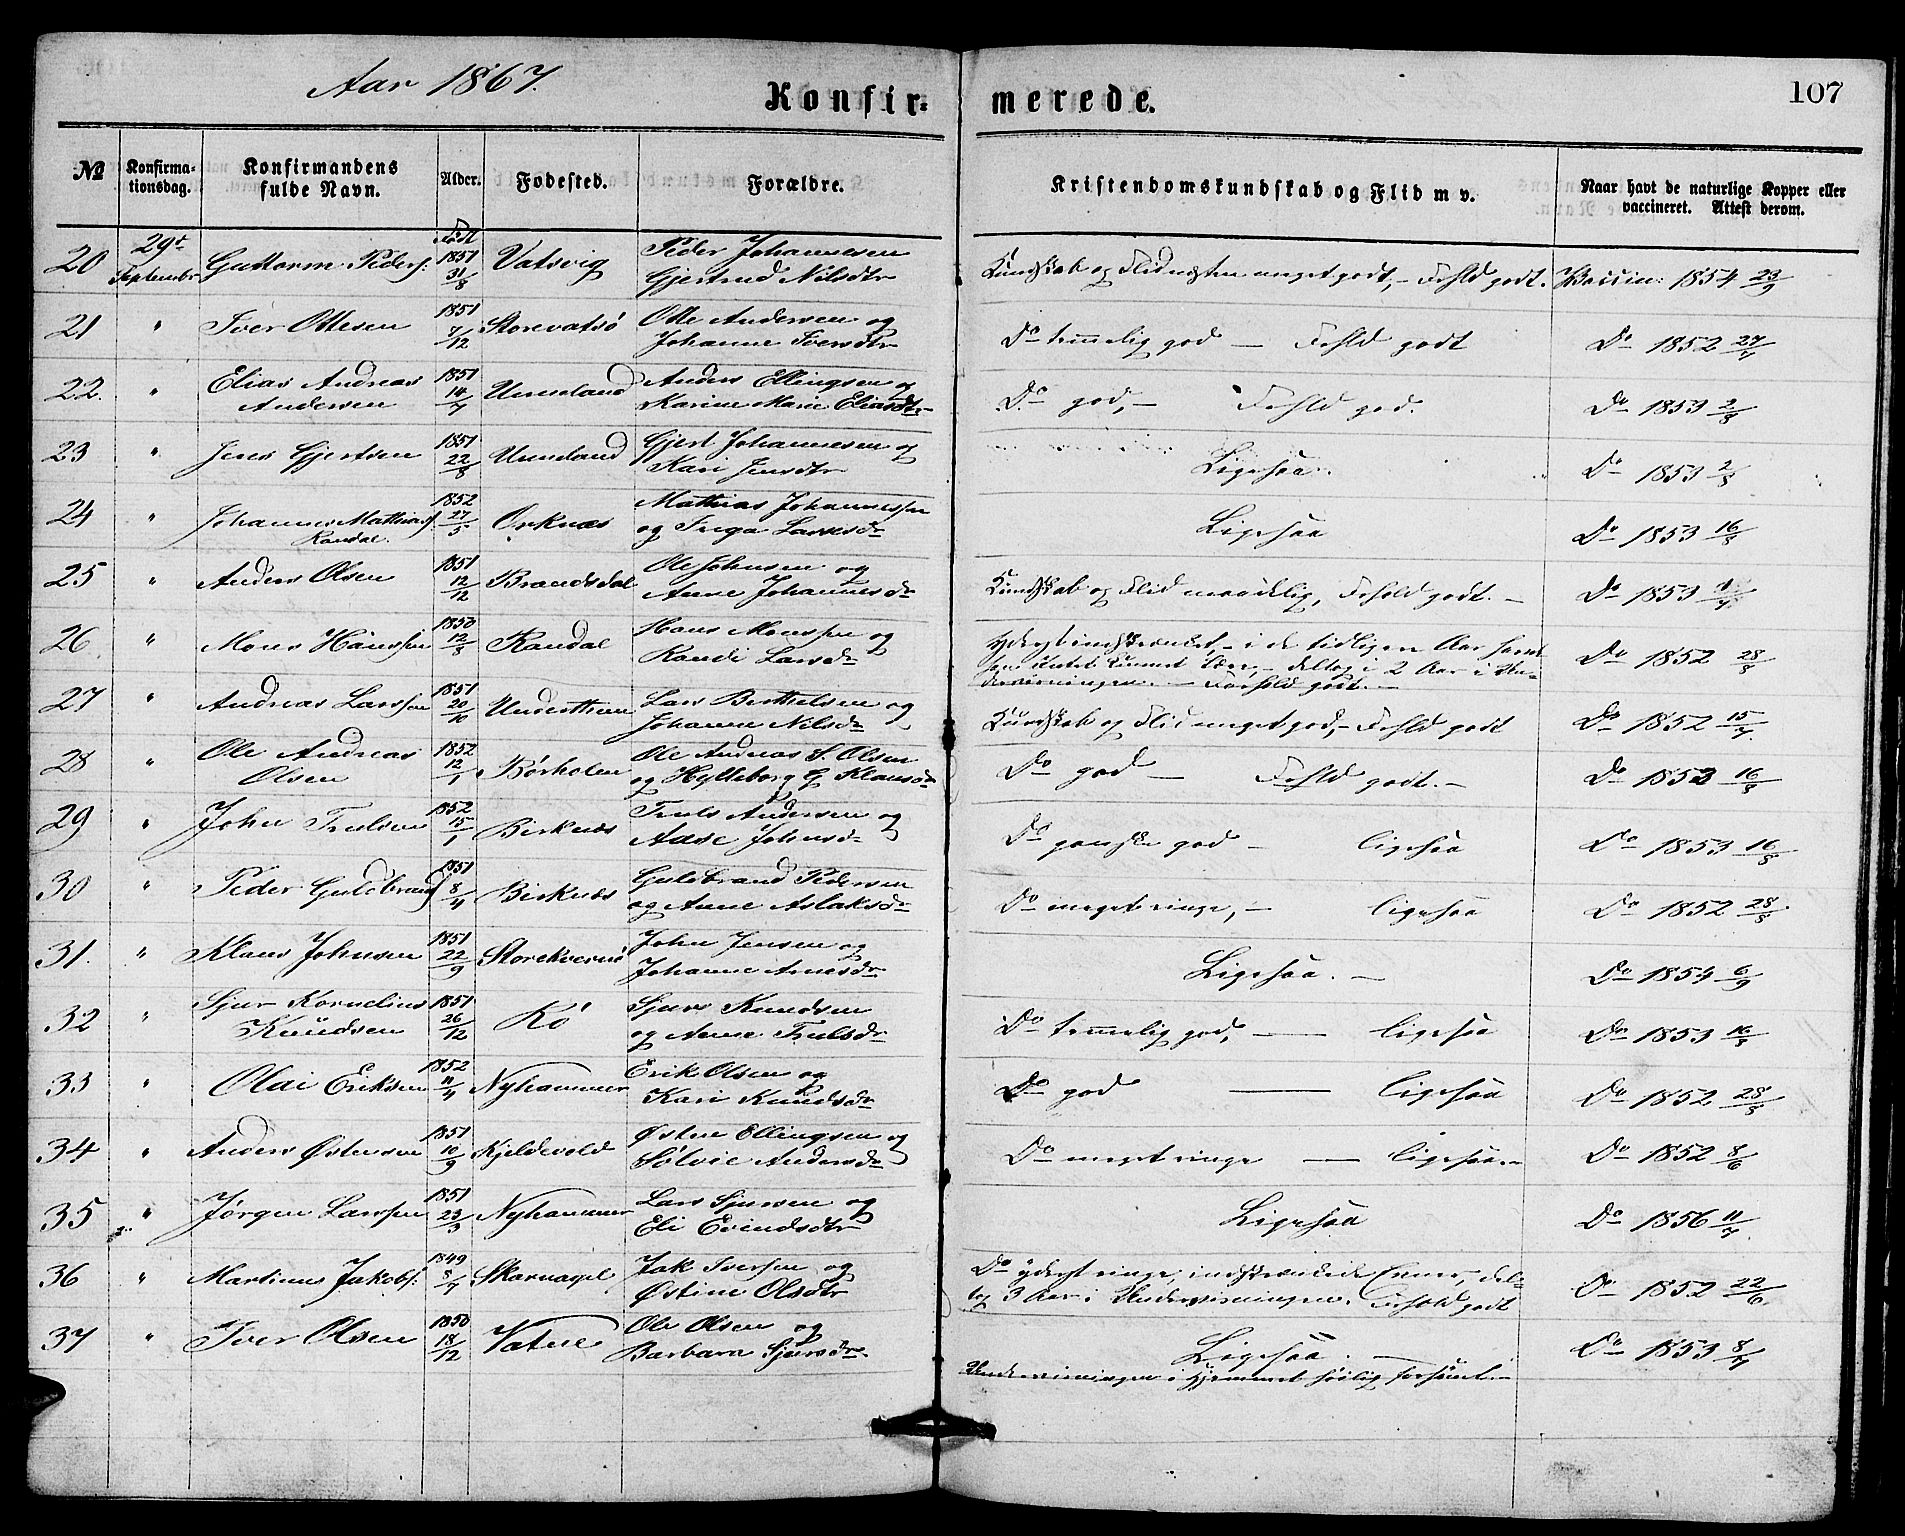 Aar 1867.
Konfir-
merede.
107
No
Konfirma-
tionsdag.
Konfirmandens
fulde Navn.
Alder.
Fødested.
Forældre.
Kristendomskundskab og Flid m v.
Naar havt de naturlige Kopper eller
vaccineret. Attest derom.
Født
20 29de September Guttorm Peders: 1851 31/8 Vatsvig Peder Johannesen
Gjertrud Nilsdtr Kundskab og Flid næsten meget godt, – Forhld godt. Vaccin: 1854 23/9
21 " Iver Ottesen 1851 7/12 Storevatsø Otte Andersen og
Johanne Iversdtr Do temmelig god – Forhld godt Do 1852 27/7
22. " Elias Andreas
Andersen 1851 14/7 Urneland Anders Ellingsen og
Karine Marie Eliasdtr Do god, – Forhld god. Do 1853 2/8
23 " Jens Gjertsen 1851 22/8 Urneland Gjert Johannesen og
Kari Jensdtr Ligesaa. Do 1853 2/8
24 " Johannes Mathiass.
Randal. 1852 27/5 Orknæs Mathias Johannessen
og Inga Larsesdr Ligesaa Do 1853 16/8
25 " Anders Olsen 1851 12/12 Brandsdal Ole Johnsen og
Anne Johannesdr Kundskab og Flid maadelig, Forhold godt. – Do 1853
26. " Mons Hanssen 1850 12/8 Randal Hans Monssen og
Randi Larsdr
i de tidligere Aar
deltog i 2 Aar i Un-
dervisningen. – Forhold godt. – Do 1852 28/8
27 " Andreas Larssen 1851 20/10 Undertheen Lars Berthelsen og
Johanne Nilsdr Kundskab og Flid meget god, – Forhld godt Do 1852 15/7.
28 " Ole Andreas
Olsen 1852 12/1 Børholen Ole Andreas S. Olsen
og Hylleborg G. Klausdr Do god – Forhld godt. – Do 1853 16/8
29 " John Trulsen 1852 15/1 Birknæs Truls Andersen og
Aase Johnsdr Do ganske god – ligesaa Do 1853 16/8
30 " Peder Guldbrands 1851 8/4 Birknæs Guldbrand Pedersen
og Anne Aslaksdr Do meget ringe, – ligesaa Do 1852 28/8
31. " Klaus Johnsen 1851 22/9 Storekversø John Jensen og
Johanne Arnesdr Ligesaa. – Do 1854 6/9
32 " Sjur Kornelius
Knudsen 1851 26/12 Kø Sjurs Knudsen
og Anne Trulsdr Do temmelig god, – ligesaa Do 1853 16/8
33 " Olai Eriksen 1852 11/4 Nyhammer Erik Olsen og
Kari Knudsdr Do god – ligesaa Do 1852 28/8
34 " Anders Østensen 1851 10/9 Kjeldevold Østen Ellingsen og
Sølvie Andersdr Do meget ringe – ligesaa. – Do 1852 8/6
35 " Jørgen Larssen 1851 23/3 Nyhammer Lars Sjursen og
Eli Evindsdtr Ligesaa Do 1856 11/7.
36 " Martinus Jakobs: 1849 8/7 Skarnagel Jak Iversen og
Østine Olsdtr Do yderst ringe, indskrænkede Evner, del-
tog 3 Aar i Undervisningen. Forhold godt Do 1852 22/6.
37 " Iver Olsen 1850 18/12 Vatne Ole Olsen og
Barbara Sjursdr. Ligesaa. –
Undervisningen i Hjemmet forsømt. – Do 1853 8/7